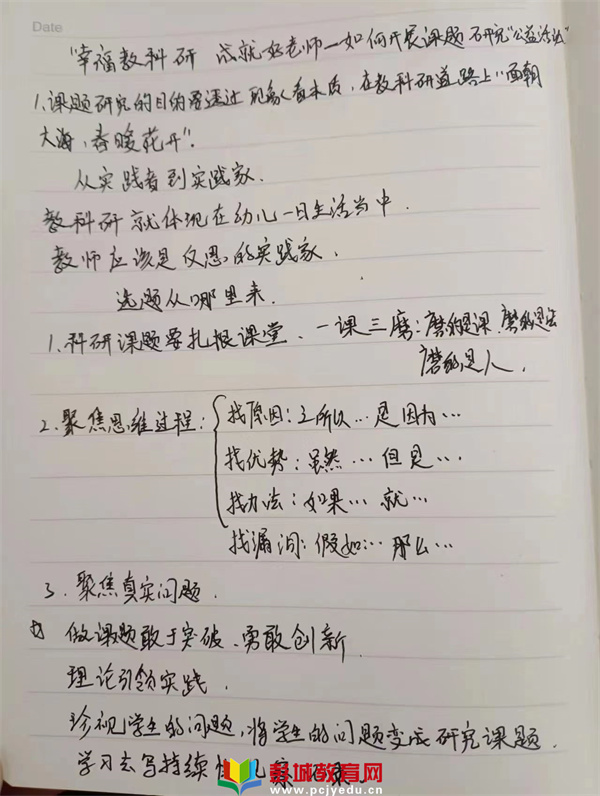 Date
“幸福教科研 成就好老师—如何开展课题研究“公益活动”
1.课题研究的目的要透过现象看本质,在教科研道路上“面朝
大海,春暖花开”.
从实践者到实践家.
教科研就体现在幼儿一日生活当中.
教师应该是反思的实践家.
选题从哪里来.
1.科研课题要扎根课堂、一课三磨:磨的是课、磨的是法
磨的是人.
2.聚焦思维过程:
找原因:之所以…是因为…
找优势:虽然…但是…
找办法:如果…就…
找漏洞:假如…那么…
3.聚焦真实问题.
做课题敢于突破、勇敢创新
理论引领实践.
珍视学生的问题,将学生的问题变成研究课题.
学习去写持续性
彭城教育网
www.pcjyedu.cn